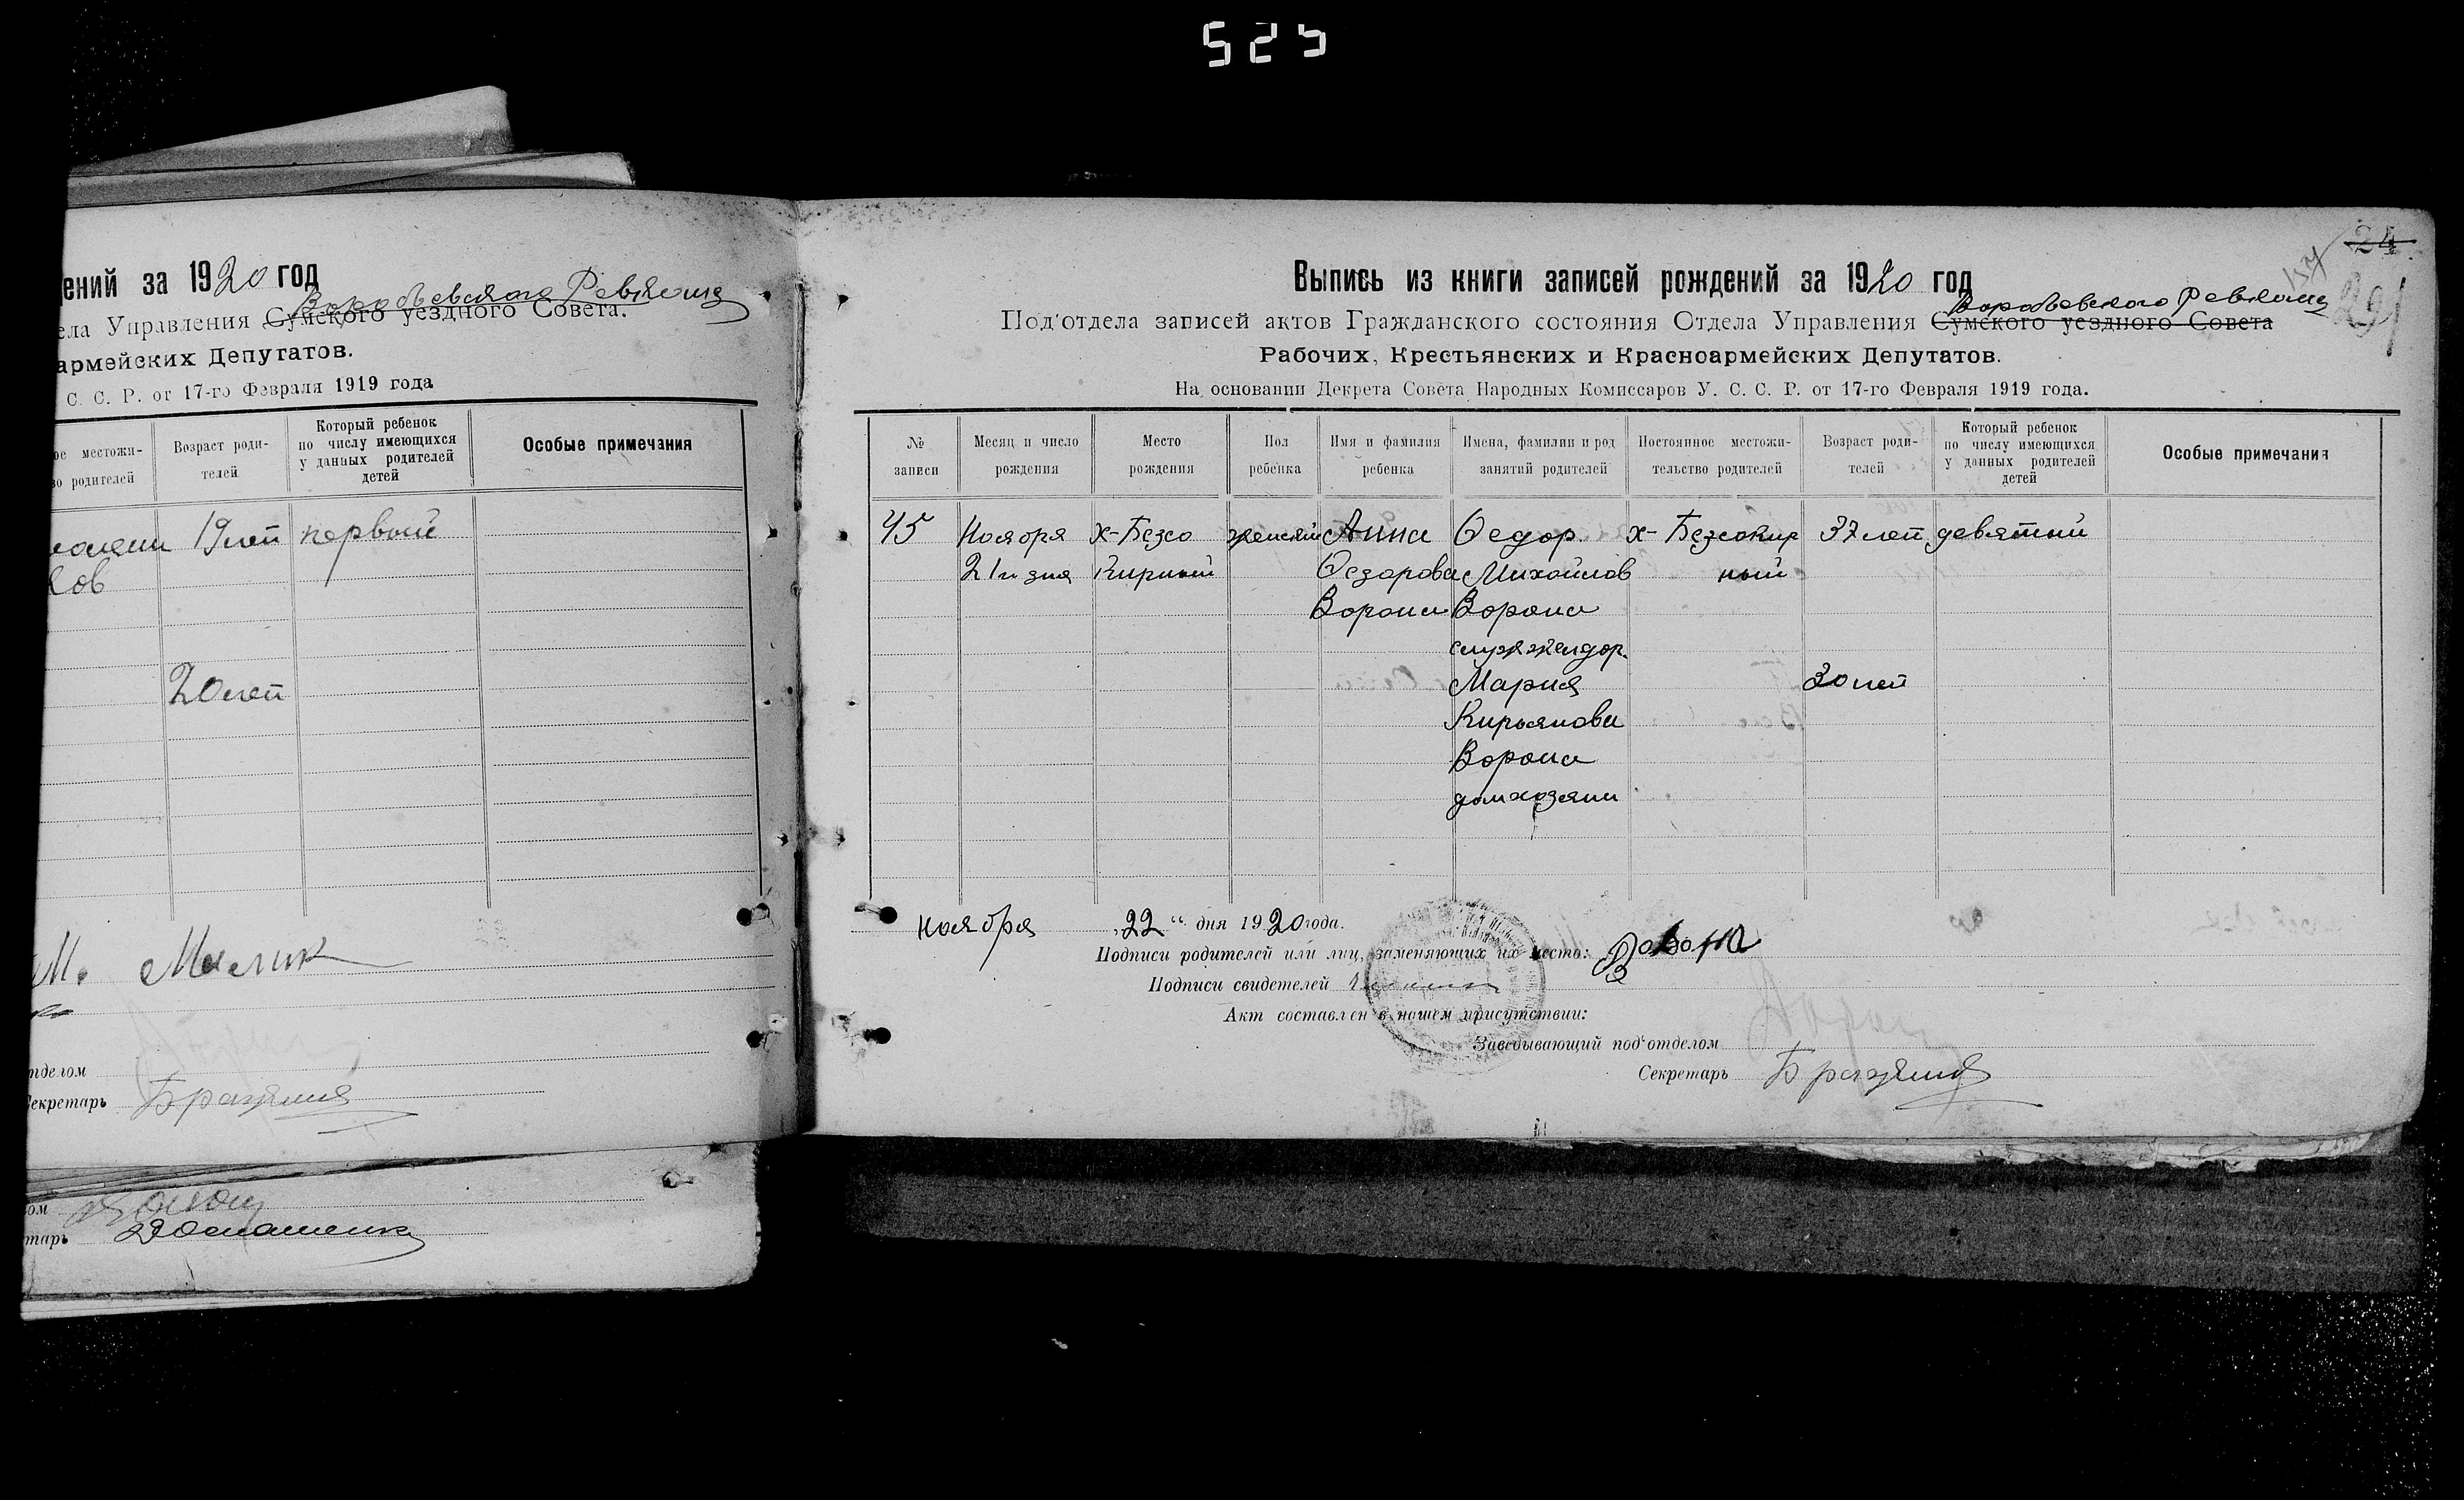 525
ений за 1920 год
Воробьевского Ревкома
ела Управления Сумского уездного Совета.
армейских Депутатов.
С. С. Р. от 17-го Февраля 1919 года
ое местожи-
во родителей
Возраст роди-
телей
Который ребенок
по числу имеющихся
у данных родителей
детей
Особые примечания
19 лет
первый
ков
20 лет
М. Малик
отделом
Секретарь
ом
тарь
24
Выпись из книги записей рождений за 1920 год
Воробьевского Ревкома
Под'отдела записей актов Гражданского состояния Отдела Управления Сумского уездного Совета
Рабочих, Крестьянских и Красноармейских Депутатов.
На основании Декрета Совета Народных Комиссаров У. С. С. Р. от 17-го Февраля 1919 года.
№
записи
Месяц и число
рождения
Место
рождения
Пол
ребенка
Имя и фамилия
ребенка
Имена, фамилии и род
занятий родителей
Постоянное местожи-
тельство родителей
Возраст роди-
телей
Который ребенок
по числу имеющихся
у данных родителей
детей
Особые примечания
45
Ноября
21го дня
х-Безсо
кирный
женский
Анна
Федорова
Ворона
Федор
Михайлов
Ворона
служ желдор.
Мария
Кирьянова
Ворона
домхозяин
х-Безсокир
ный
37 лет
30 лет
девятый
ноября „22“ дня 1920 года.
Подписи родителей или лиц, заменяющих их место:
Подписи свидетелей
Акт составлен в нашем присутствии:
Заведывающий под'отделом
Секретарь